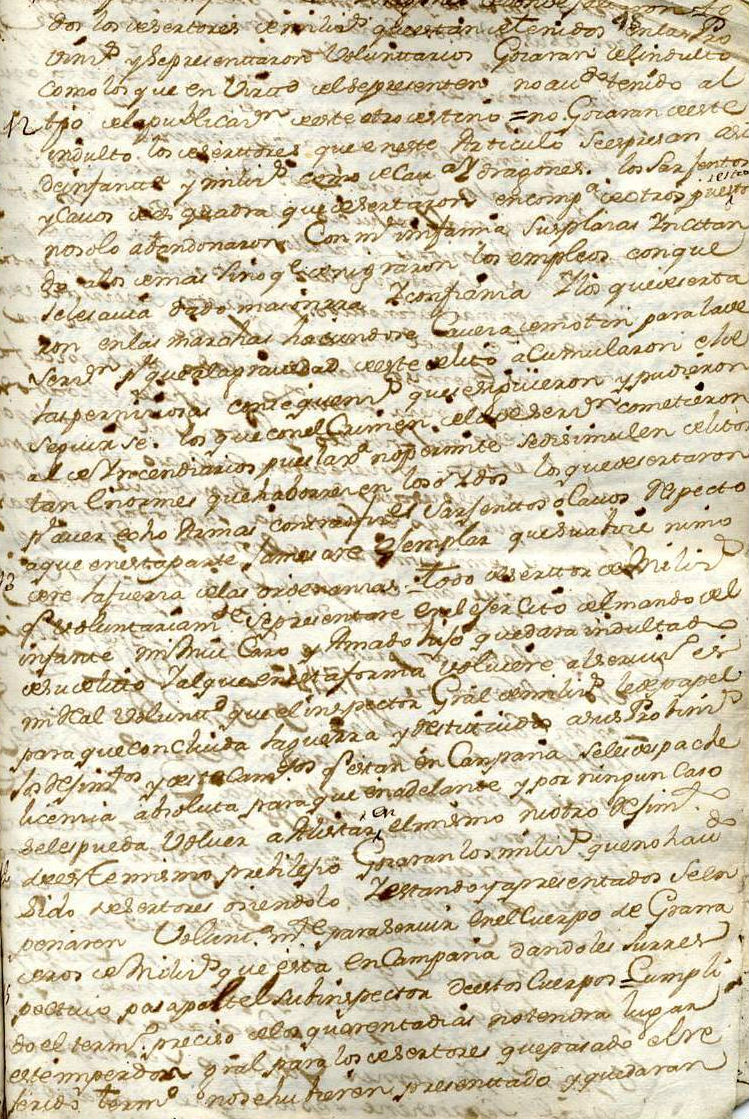 dos los desertores de milic.s que estan detenidos en las Pro
vinc.s y se presentaron Voluntarios Gozaran del indulto
como los que en Virtud del se presenten no aviendo tenido al
12 tpo del publicaz.n de este otro destino = no Gozaran de este
indulto los desertores que en este Articulo se espresan asi
de infant.a y milic.s como de Cav.a y dragones. los Sargentos
y Cavos de esquadra que desertaron en comp.a de otros puesto
no solo abandonaron Con m.s infamia sus plazas Incitan
do a los demas sino q.e denigraron los empleos con que
se les avia dado mas onrra y confianza y los que deserta
ron en las marchas haciendose Cavera de motin para la de
serz.n p.r que a la gravedad de este delito acumularon el de
las perniciosas consequenc.s que se siguieron y pudieron
seguirse. los que con el Crimen de la deserz.n cometieron
al de Yncendiarios pues la r.n no permite se disimulen delitos
tan Enormes que haborrecen los o dos los que desertaron
p.r aver echo Armas contra sus Sargentos o Cavos respecto
a que en esta parte jamas are Exemplar que rebaxe ni mo
13 dere la fuerza de las ordenanzas = Todo desertor de Milic.s
q.e voluntariam.te se presentare en el Exercito del mando del
infante mi mui Caro y Amado hijo quedara indultado
de su delito y al que en esta forma Volviere al servicio es
mi Real Volunt.d que el inspector Gral de milic.s le de papel
para que concluida la guerra y restituidos a sus Probinc.s
los Rejim.tos y destacam.tos q.e estan en Campaña se les despache
licencia absoluta para que en adelante y por ningun Caso
se les pueda Volver a Alistar en el mismo ni otro Rejim.to
de este mismo previlejio Gozaran los milic.s que no haviendo
sido desertores oiendolo y estando ya presentados se en
penaren Volunt.m.te para servir en el Cuerpo de Grana
deros de Milic.s que esta en Campaña dandoles su rres
pectivo pasaporte el Subinspector de estos Cuerpos = Cumpli
do el term.o preciso de los quarenta dias no tendra lugar
este imperdon gral para los desertores que pasado el re
ferido term.o no se hubieren presentado y quedaran